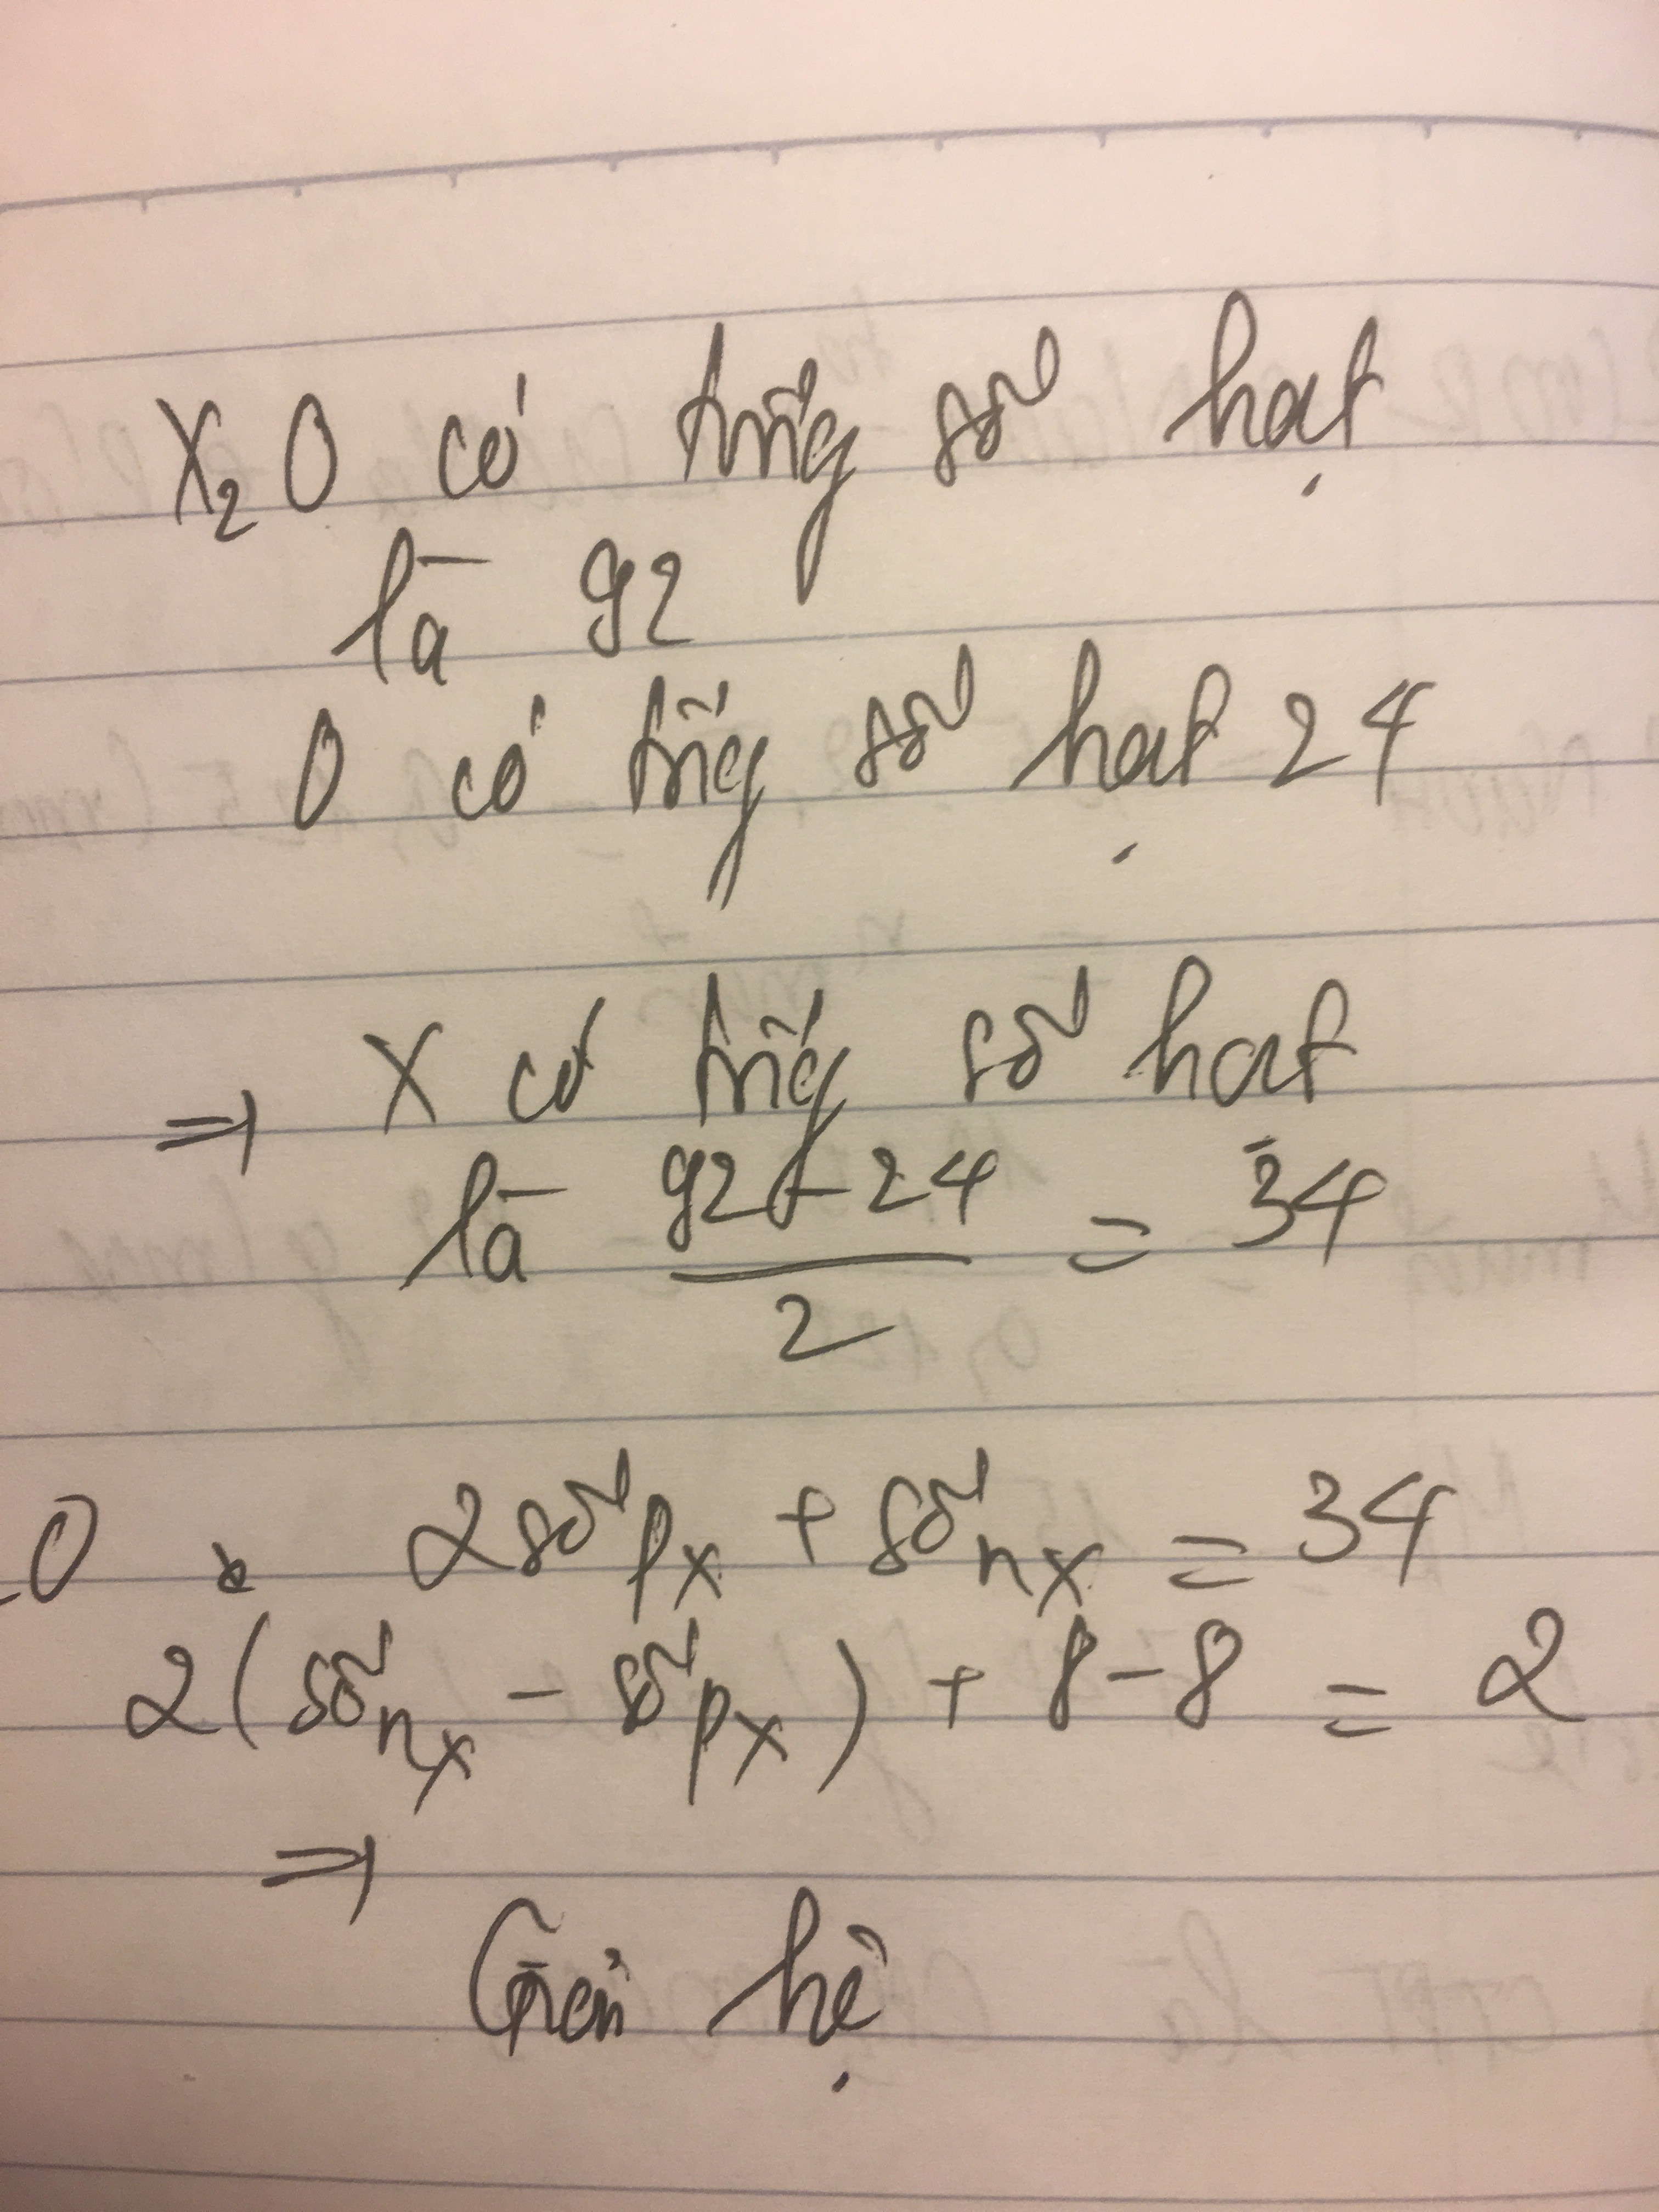 X₂O có tổng số hạt
là 92
O có tổng số hạt 24
⇒ X có tổng số hạt
là (92 - 24)/2 = 34
2 số pₓ + số nₓ = 34
2(số nₓ - số pₓ) + 8 - 8 = 2
⇒
Giải hệ